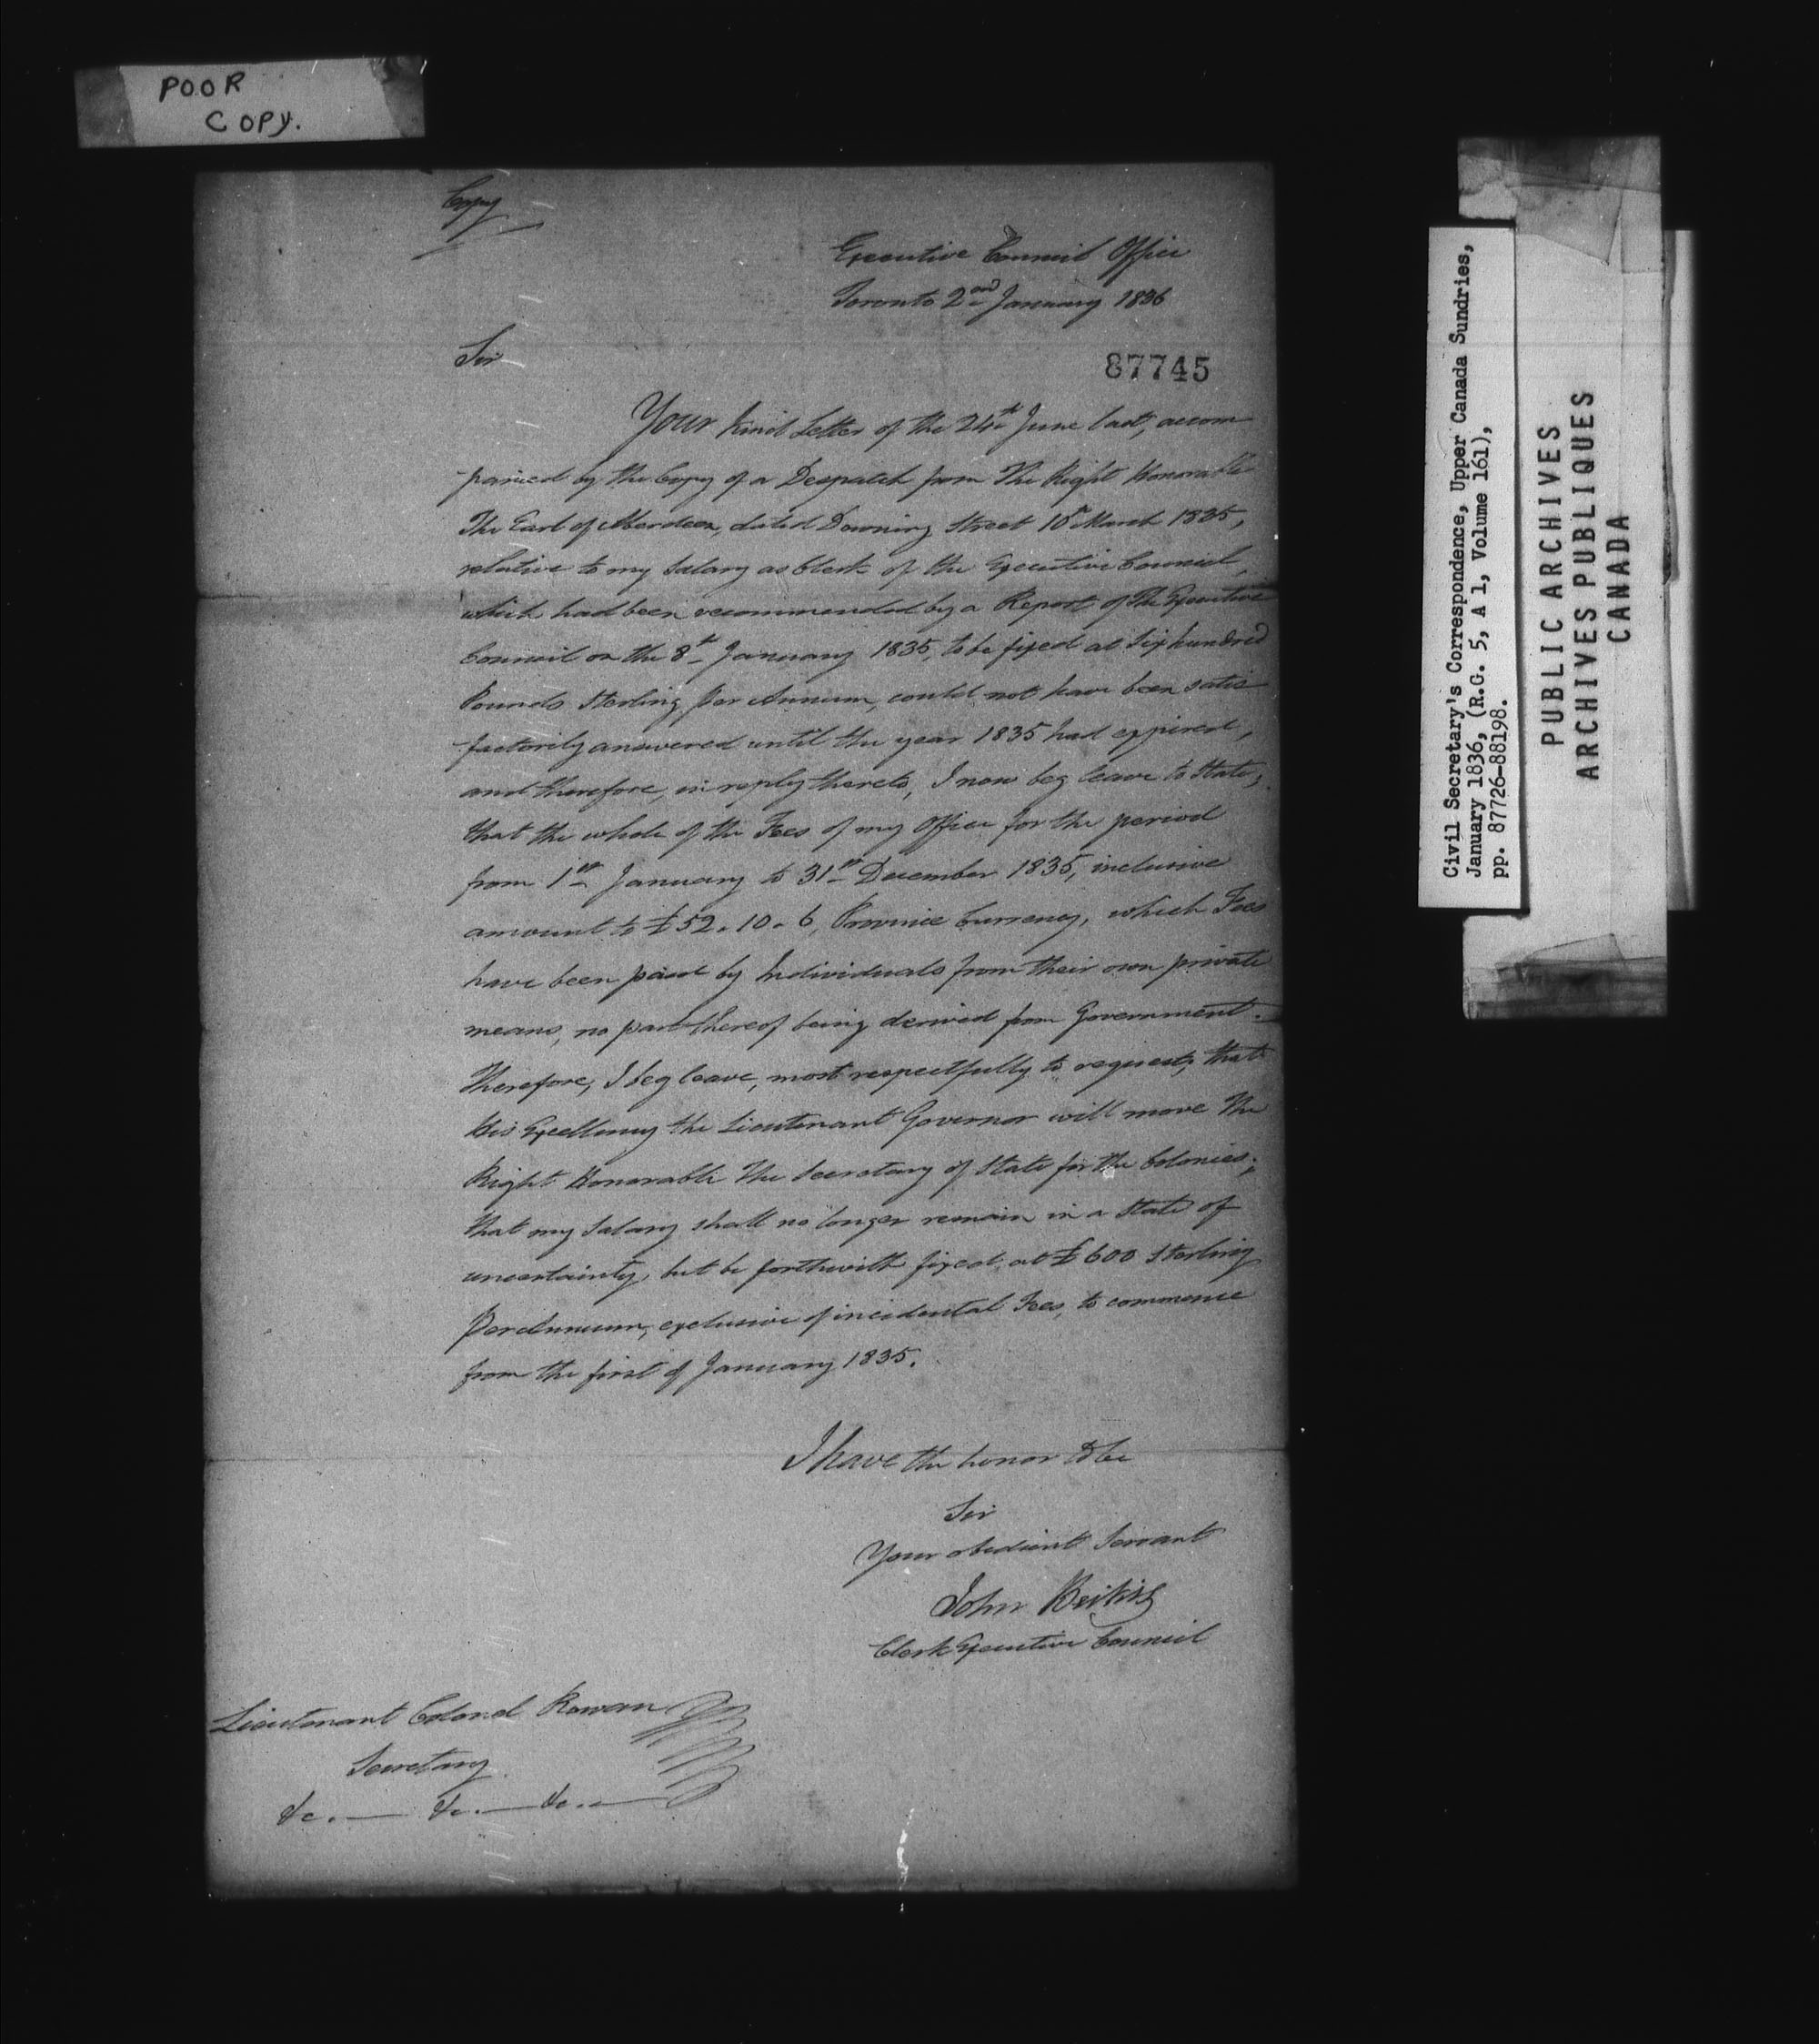 POOR
COPY.
Copy
Executive Council Office
Toronto 2nd January 1836
Sir
87745
Your kind Letter of the 24th June last, accom
panied by the Copy of a Despatch from The Right Honorable
The Earl of Aberdeen, dated Downing Street 10th March 1835,
relative to my Salary as Clerk of the Executive Council,
which had been recommended by a Report of The Executive
Council on the 8th January 1835, to be fixed at Six hundred
Pounds Sterling Per Annum, could not have been satis
factorily answered until the year 1835 had expired,
and therefore, in reply thereto, I now beg leave to State,
that the whole of the Fees of my Office for the period
from 1st January to 31st December 1835, inclusive
amount to £52.10.6, Province Currency, which Fees
have been paid by Individuals from their own private
means, no part thereof being derived from Government.
Therefore, I beg leave, most respectfully to request, that
His Excellency the Lieutenant Governor will move The
Right Honorable The Secretary of State for the Colonies,
that my Salary shall no longer remain in a State of
uncertainty, but be forthwith fixed, at £600 Sterling
Per Annum, exclusive of incidental Fees, to commence
from the first of January 1835.
I have the honor to be
Sir
Your obedient Servant
John Beikie
Clerk Executive Council
Lieutenant Colonel Rowan
Secretary
&c. &c. &c.
Civil Secretary's Correspondence, Upper Canada Sundries,
January 1836, (R.G. 5, A 1, Volume 161),
pp. 87726-88198.
PUBLIC ARCHIVES
ARCHIVES PUBLIQUES
CANADA